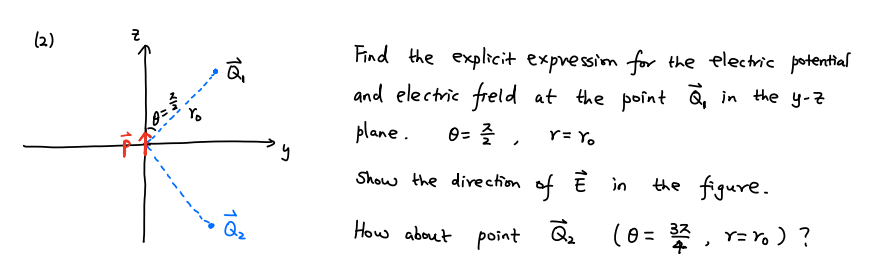 (2)
z
$\vec{Q}_1$
θ=$\frac{π}{2}$
r₀
$\vec{P}$
y
$\vec{Q}_2$
Find the explicit expression for the electric potential
and electric field at the point $\vec{Q}_1$ in the y-z
plane. θ=$\frac{π}{2}$ , r=r₀
Show the direction of $\vec{E}$ in the figure.
How about point $\vec{Q}_2$ (θ=$\frac{3π}{4}$, r=r₀)?